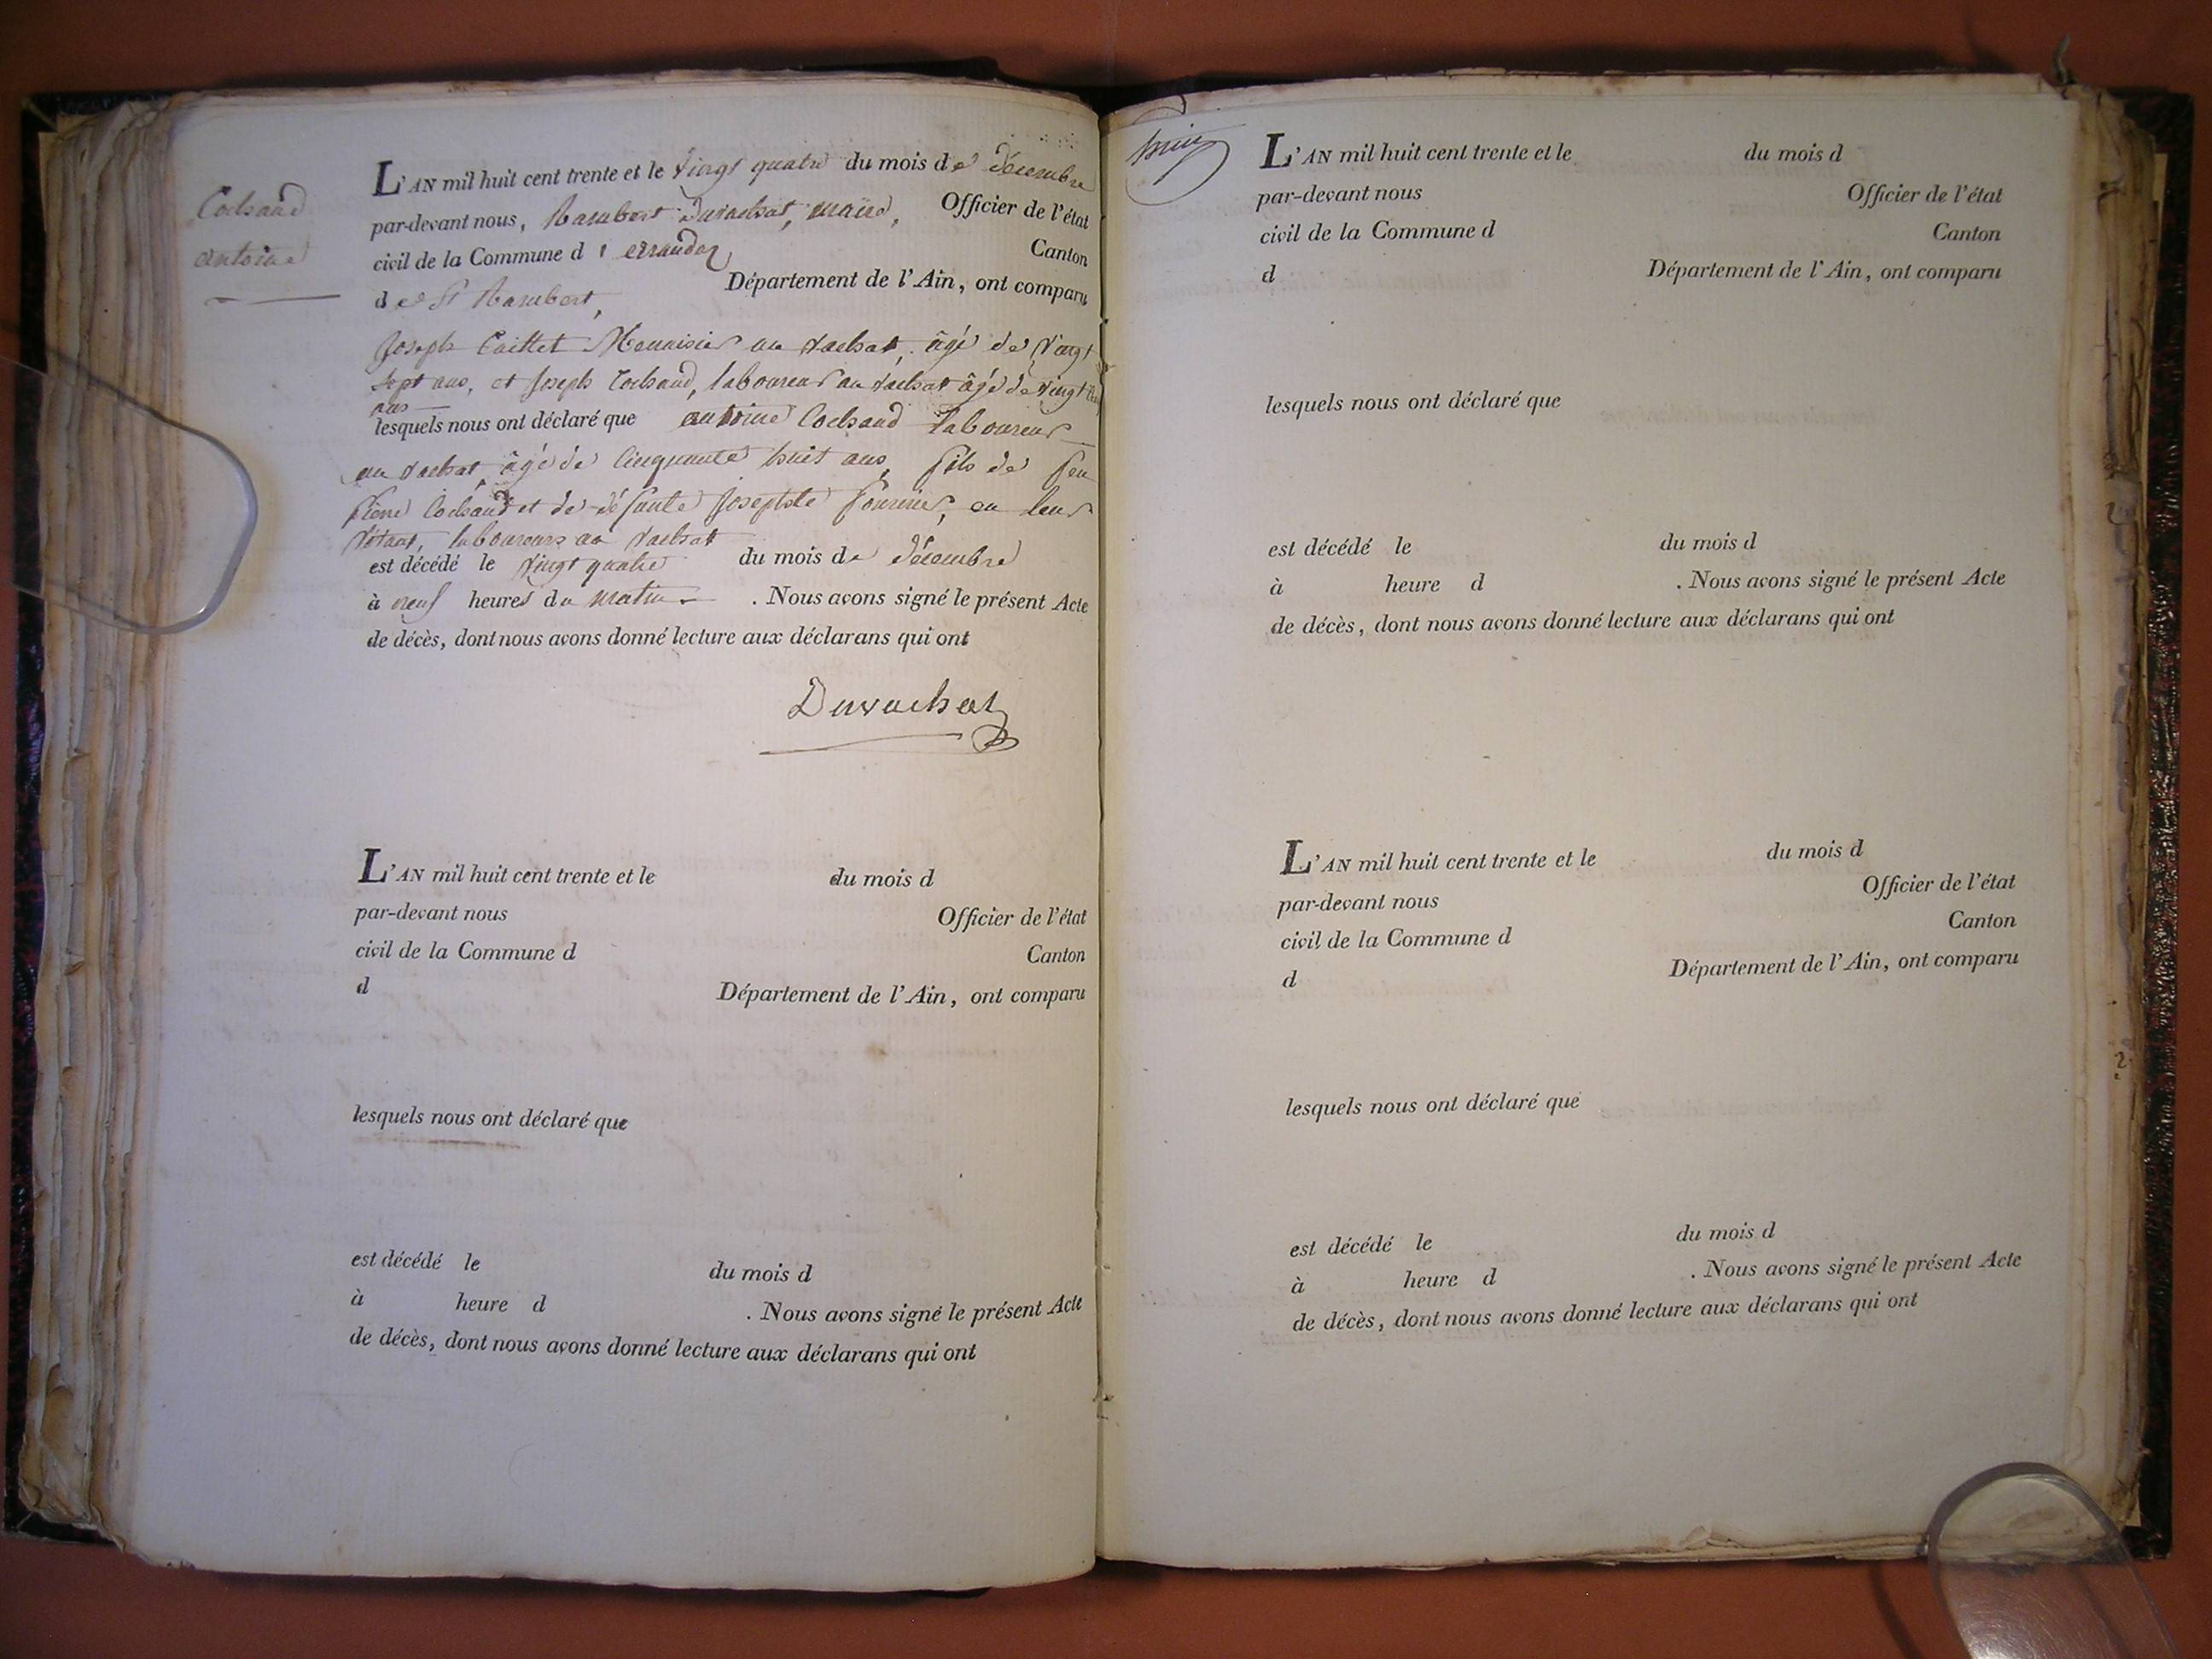 Cochand
antoine
L'AN mil huit cent trente et le vingt quatre du mois de décembre
par-devant nous, Rambert Duvachat, maire, Officier de l'état
civil de la Commune d' Canton
de St Rambert, Département de l'Ain, ont comparu
Joseph Caillet Meunier au vachat, âgé de vingt
sept ans, et Joseph Cochand, laboureur au vachat âgé de vingt
ans
lesquels nous ont déclaré que antoine Cochand laboureur
au vachat, âgé de cinquante huit ans, fils de feu
pierre Cochand et de défunte Josephte fournier, en leur
vivant, laboureurs au vachat
est décédé le vingt quatre du mois de décembre
à neuf heures du matin. Nous avons signé le présent Acte
de décès, dont nous avons donné lecture aux déclarans qui ont
Duvachat
L'AN mil huit cent trente et le du mois d
par-devant nous Officier de l'état
civil de la Commune d Canton
d Département de l'Ain, ont comparu
lesquels nous ont déclaré que
est décédé le du mois d
à heure d . Nous avons signé le présent Acte
de décès, dont nous avons donné lecture aux déclarans qui ont
L'AN mil huit cent trente et le du mois d
par-devant nous Officier de l'état
civil de la Commune d Canton
d Département de l'Ain, ont comparu
lesquels nous ont déclaré que
est décédé le du mois d
à heure d . Nous avons signé le présent Acte
de décès, dont nous avons donné lecture aux déclarans qui ont
L'AN mil huit cent trente et le du mois d
par-devant nous Officier de l'état
civil de la Commune d Canton
d Département de l'Ain, ont comparu
lesquels nous ont déclaré que
est décédé le du mois d
à heure d . Nous avons signé le présent Acte
de décès, dont nous avons donné lecture aux déclarans qui ont